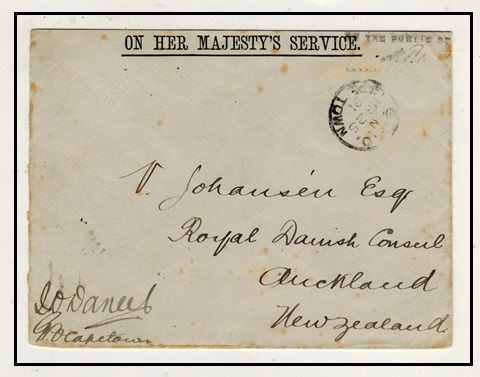 ON HER MAJESTY'S SERVICE.
THE PUBLIC
V. Johansén Esq
Royal Danish Consul
Auckland
New Zealand
G.P.O. Capetown
TOWN